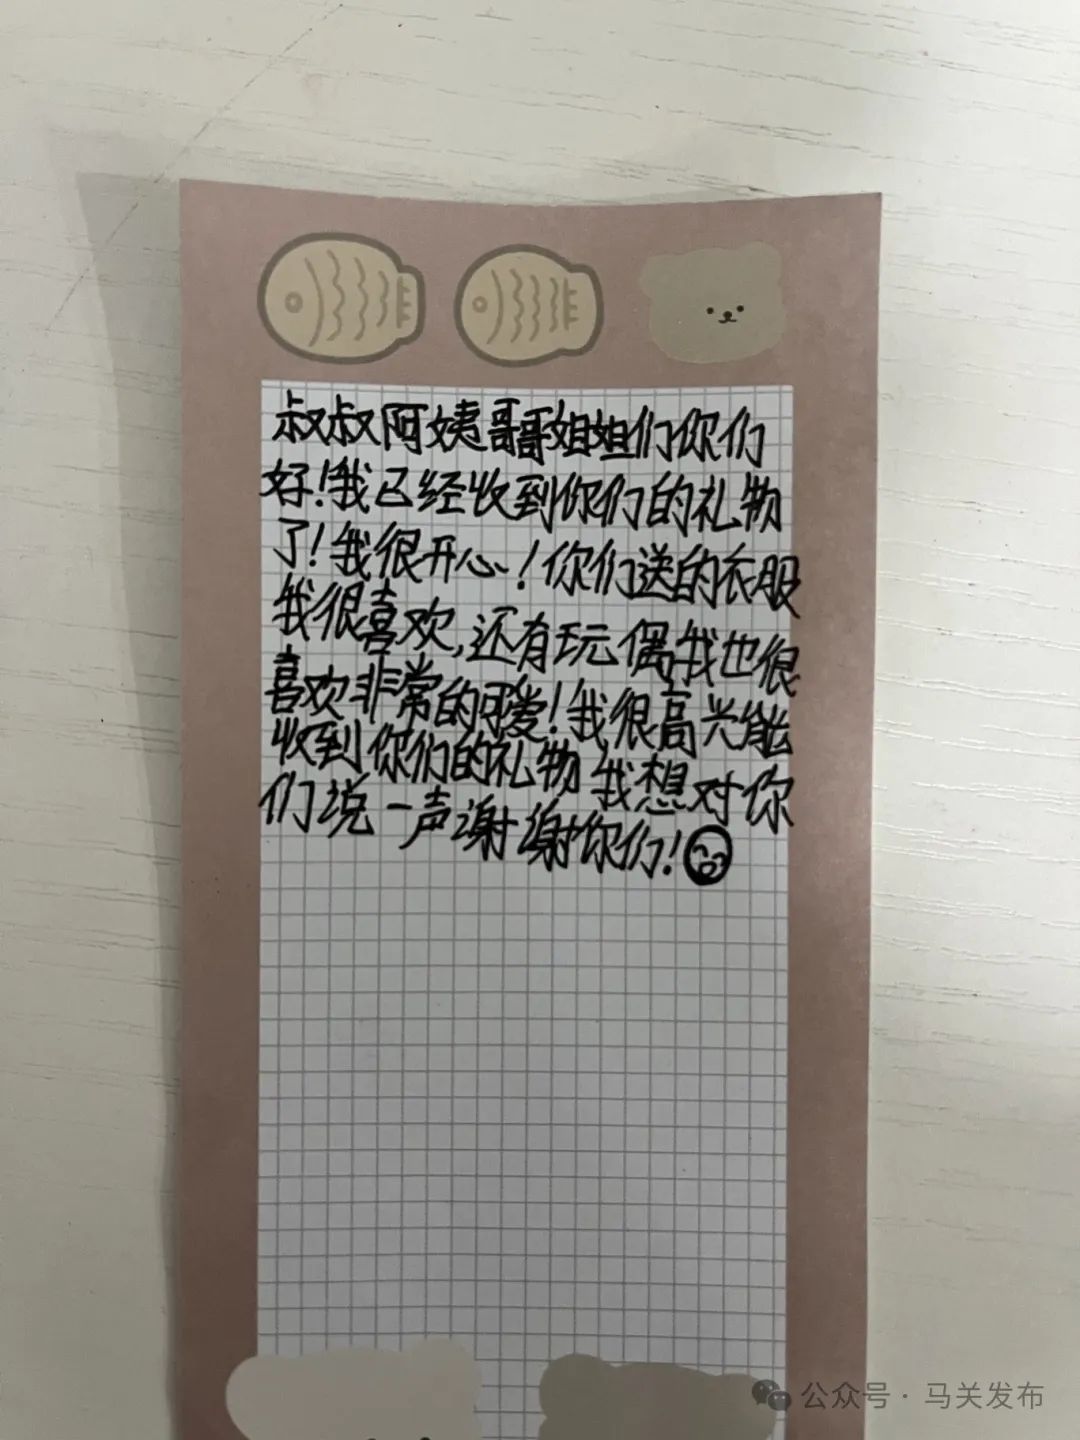 叔叔阿姨哥哥姐姐们你们
好!我已经收到你们的礼物
了!我很开心!你们送的衣服
我很喜欢,还有玩偶我也很
喜欢非常的可爱!我很高兴能
收到你们的礼物我想对你
们说一声谢谢你们!
公众号·马关发布